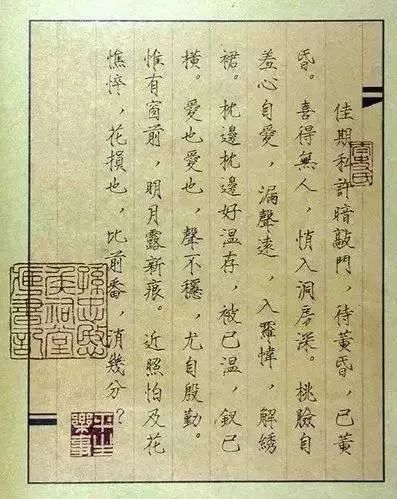 佳期私許暗敲門，待黃昏，已黃
昏。喜得無人，悄入洞房深。桃臉自
羞心自愛，漏聲遠，入羅幃，解綉
裙。枕邊枕邊好溫存，被已溫，釵已
橫。愛也愛也，聲不穩，尤自殷勤。
惟有窗前，明月露新痕。近照怕及花
憔悴，花損也，比前番，消幾分？
孫忠愍
侯祠堂
藏書記